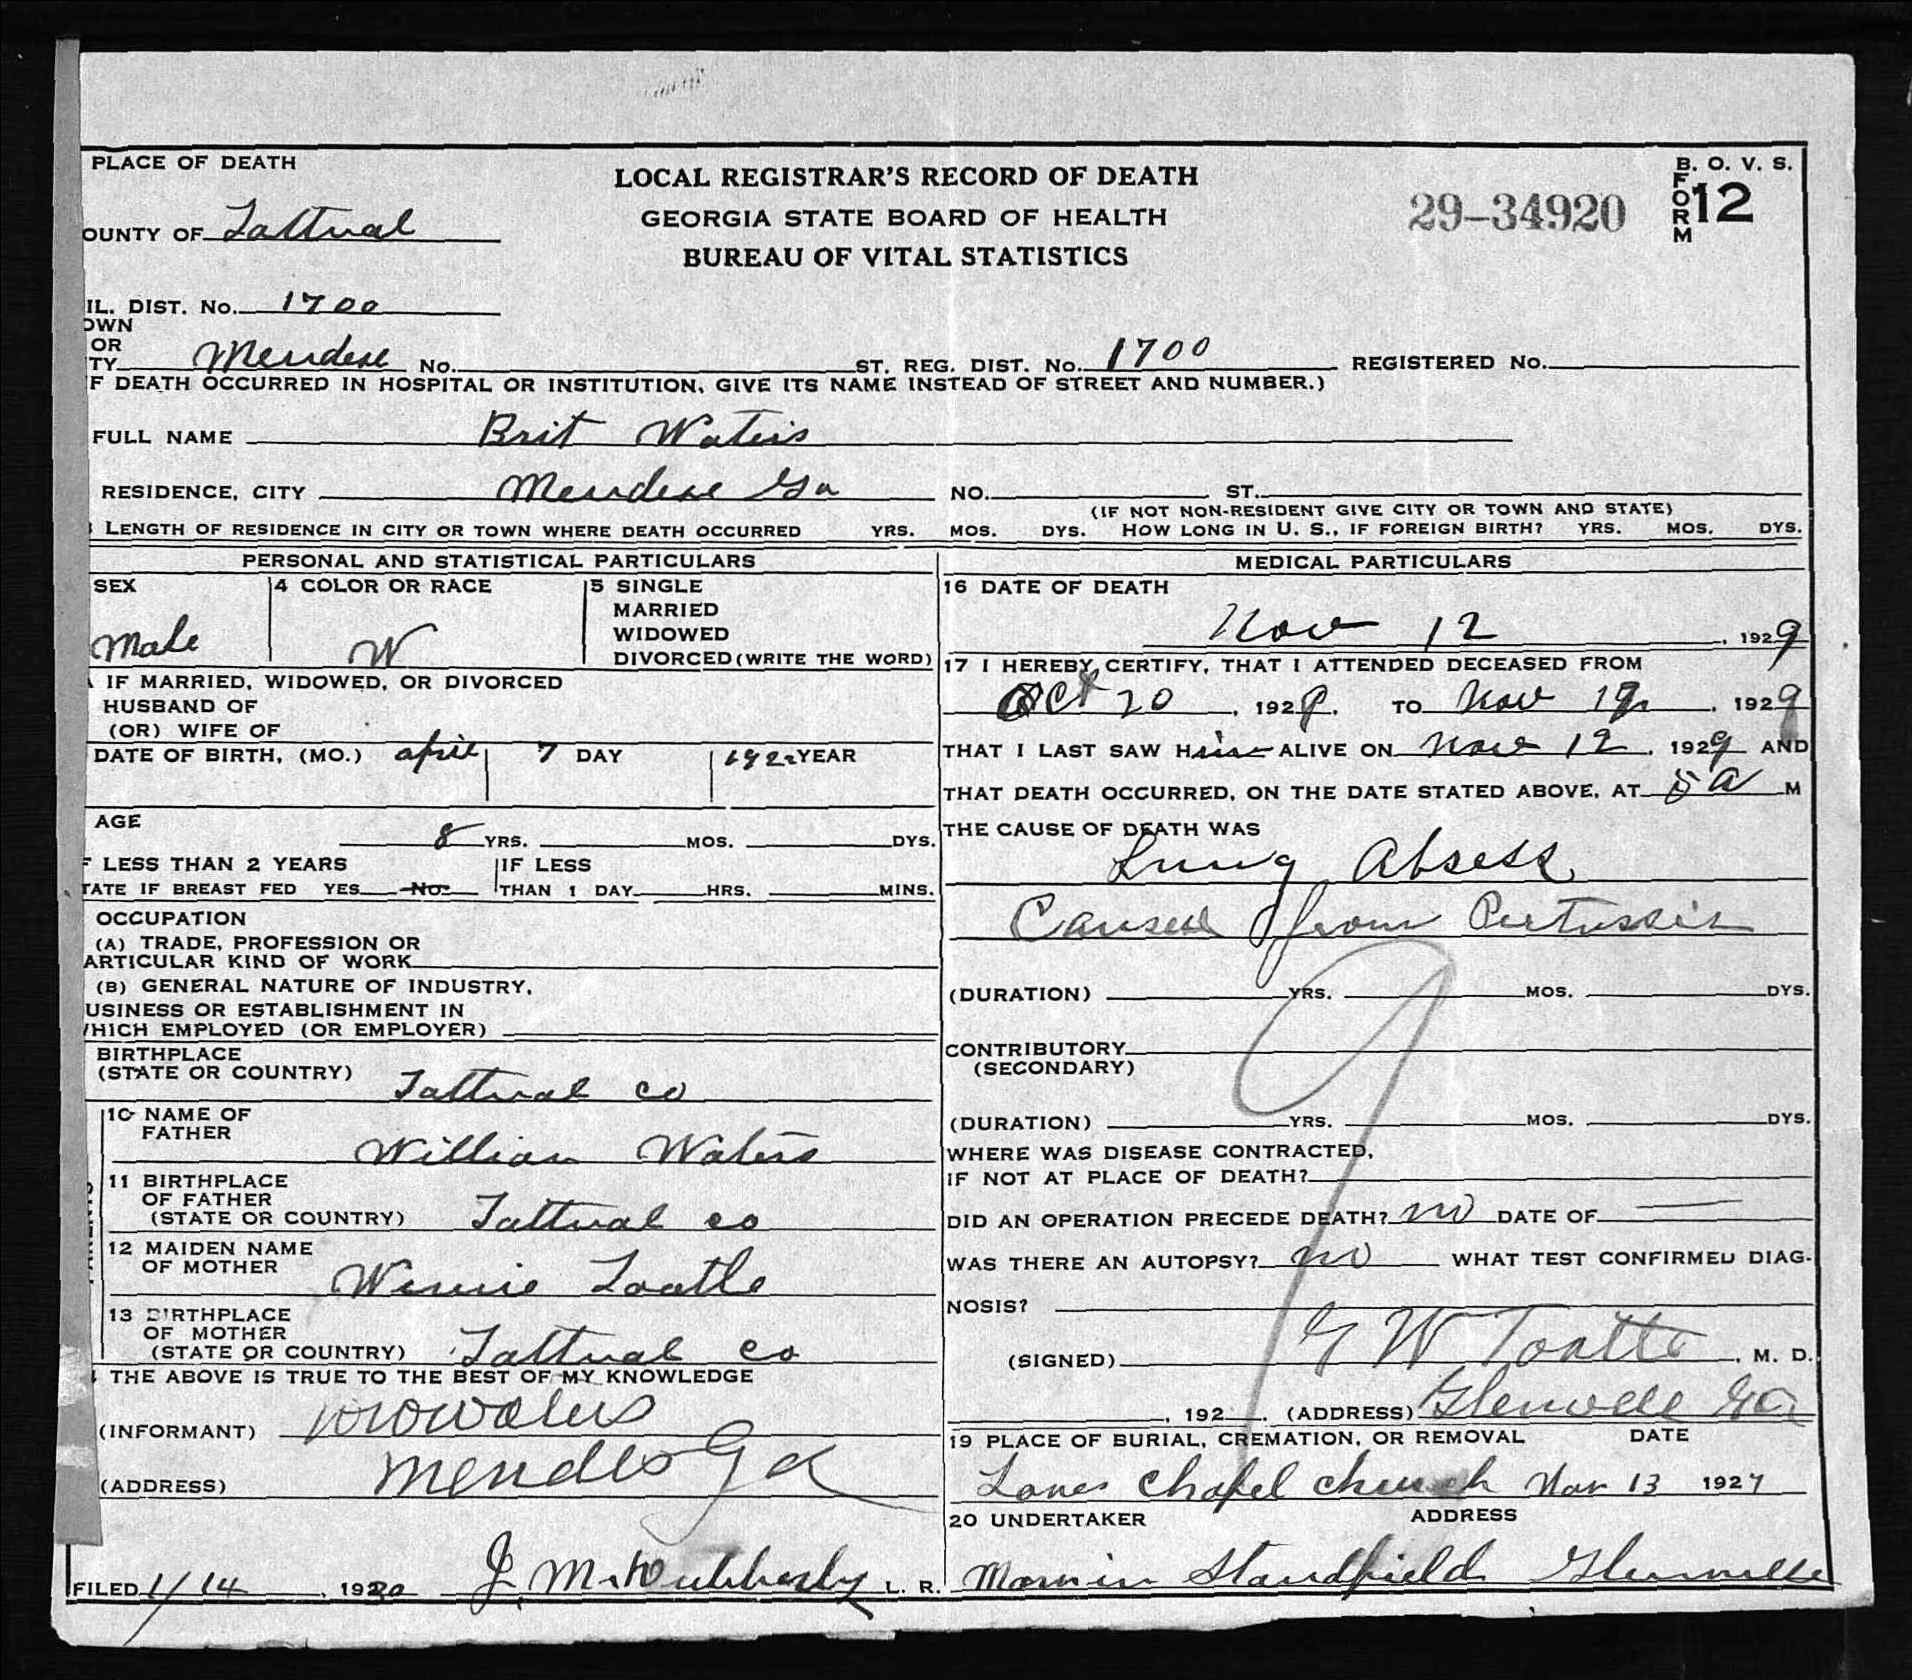 PLACE OF DEATH
LOCAL REGISTRAR'S RECORD OF DEATH
GEORGIA STATE BOARD OF HEALTH
BUREAU OF VITAL STATISTICS
29-34920
B. O. V. S.
FORM 12
OUNTY OF Tattnal
IL. DIST. No. 1700
OWN
OR
TY Mendese No. ST. REG. DIST. No. 1700 REGISTERED No.
F DEATH OCCURRED IN HOSPITAL OR INSTITUTION, GIVE ITS NAME INSTEAD OF STREET AND NUMBER.)
FULL NAME Brit Waters
RESIDENCE, CITY Mendese Ga NO. ST.
(IF NOT NON-RESIDENT GIVE CITY OR TOWN AND STATE)
LENGTH OF RESIDENCE IN CITY OR TOWN WHERE DEATH OCCURRED YRS. MOS. DYS. HOW LONG IN U. S., IF FOREIGN BIRTH? YRS. MOS. DYS.
PERSONAL AND STATISTICAL PARTICULARS
SEX
Male
4 COLOR OR RACE
W
5 SINGLE
MARRIED
WIDOWED
DIVORCED (WRITE THE WORD)
IF MARRIED, WIDOWED, OR DIVORCED
HUSBAND OF
(OR) WIFE OF
DATE OF BIRTH, (MO.) april 7 DAY YEAR
AGE
8 YRS. MOS. DYS.
F LESS THAN 2 YEARS
TATE IF BREAST FED YES No
IF LESS
THAN 1 DAY HRS. MINS.
OCCUPATION
(A) TRADE, PROFESSION OR
ARTICULAR KIND OF WORK
(B) GENERAL NATURE OF INDUSTRY,
USINESS OR ESTABLISHMENT IN
HICH EMPLOYED (OR EMPLOYER)
BIRTHPLACE
(STATE OR COUNTRY) Tattnal co
10 NAME OF
FATHER William Waters
11 BIRTHPLACE
OF FATHER
(STATE OR COUNTRY) Tattnal co
12 MAIDEN NAME
OF MOTHER Winnie Tootle
13 BIRTHPLACE
OF MOTHER
(STATE OR COUNTRY) Tattnal co
THE ABOVE IS TRUE TO THE BEST OF MY KNOWLEDGE
(INFORMANT)
(ADDRESS) Mendes Ga
FILED 1/14, 1930 L. R.
MEDICAL PARTICULARS
16 DATE OF DEATH
Nov 12, 1929
17 I HEREBY CERTIFY, THAT I ATTENDED DECEASED FROM
Oct 20, 1929, TO Nov 12, 1929
THAT I LAST SAW Him ALIVE ON Nov 12, 1929 AND
THAT DEATH OCCURRED, ON THE DATE STATED ABOVE, AT 5 a M
THE CAUSE OF DEATH WAS
Lung Absess
Caused from Pertussis
(DURATION) YRS. MOS. DYS.
CONTRIBUTORY
(SECONDARY)
(DURATION) YRS. MOS. DYS.
WHERE WAS DISEASE CONTRACTED,
IF NOT AT PLACE OF DEATH?
DID AN OPERATION PRECEDE DEATH? no DATE OF —
WAS THERE AN AUTOPSY? no WHAT TEST CONFIRMED DIAG-
NOSIS?
9
(SIGNED) G W Tootle, M. D.
, 192 . (ADDRESS) Glenville Ga
19 PLACE OF BURIAL, CREMATION, OR REMOVAL DATE
Lanes Chapel Church Nov 13 1927
20 UNDERTAKER ADDRESS
Standfield Glennville